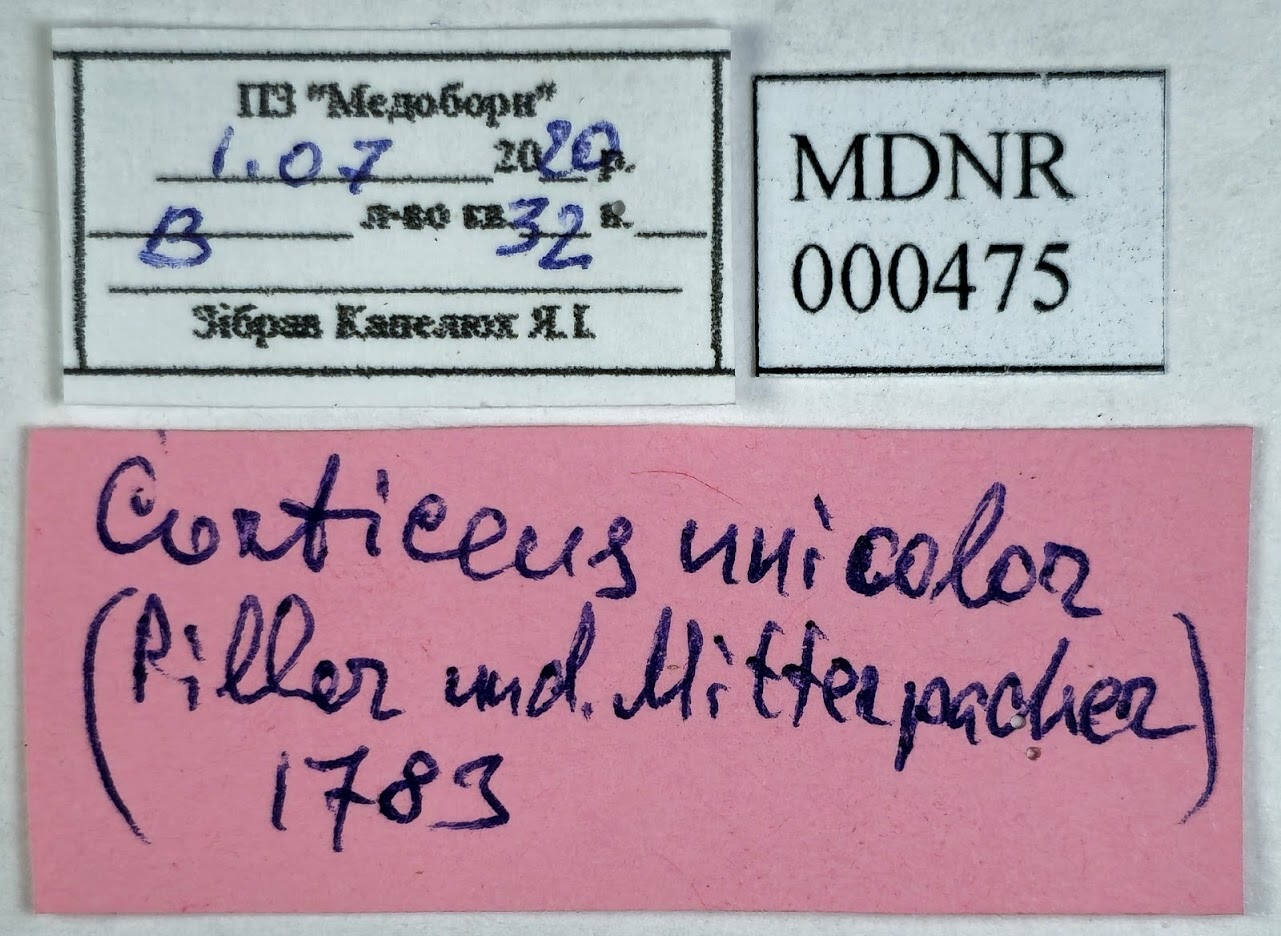 ПЗ "Медобори"
1.07 2020 р.
В л-во кв. 32 в.
Зібрав Капелюх Я.І.
MDNR
000475
Corticeus unicolor
(Piller und. Mitterpacher)
1783